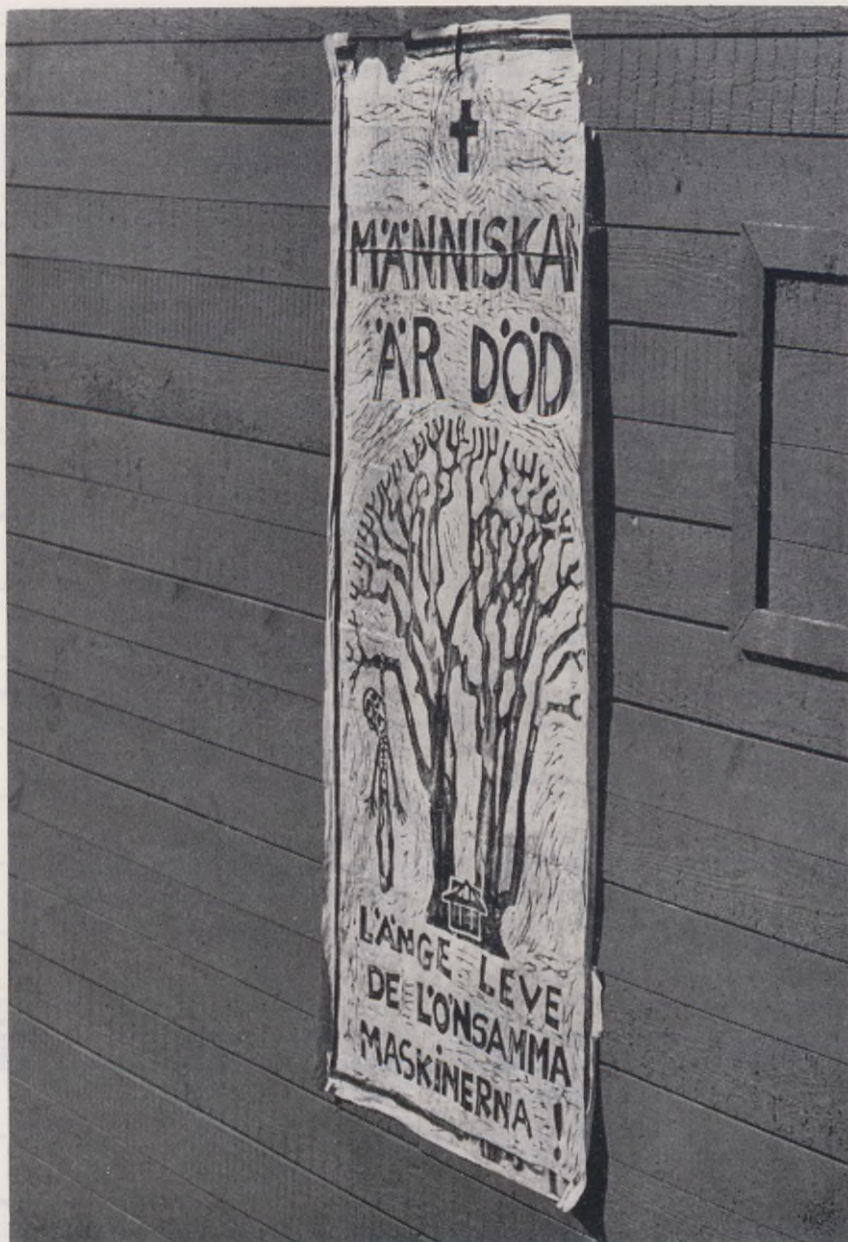 MÄNNISKAN
ÄR DÖD
LÄNGE LEVE
DE LÖNSAMMA
MASKINERNA !